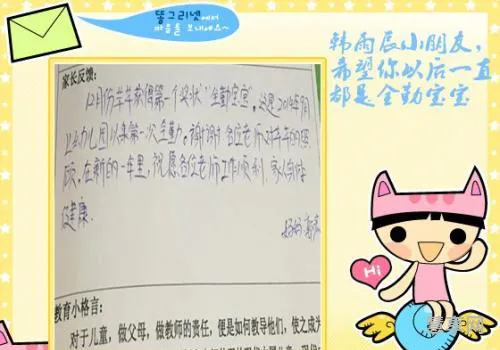 똥그리넷에서
마음을 보내세요~
韩雨辰小朋友,
希望你以后一直
都是全勤宝宝
家长反馈:
12月份羊羊获得第一个奖状"全勤宝宝",这是2014年9月
上幼儿园以来第一次全勤。谢谢各位老师对羊羊的照
顾,在新的一年里,祝愿各位老师工作顺利,家人身体
健康.
妈妈
Hi
教育小格言:
对于儿童,做父母,做教师的责任,便是如何教导他们,使之成为